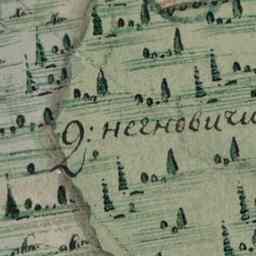 Д: негновичи